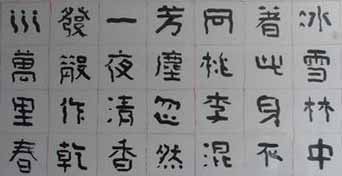 冰雪林中
著此身不
同桃李混
芳塵忽然
一夜清香
發散作乾
巛萬里春